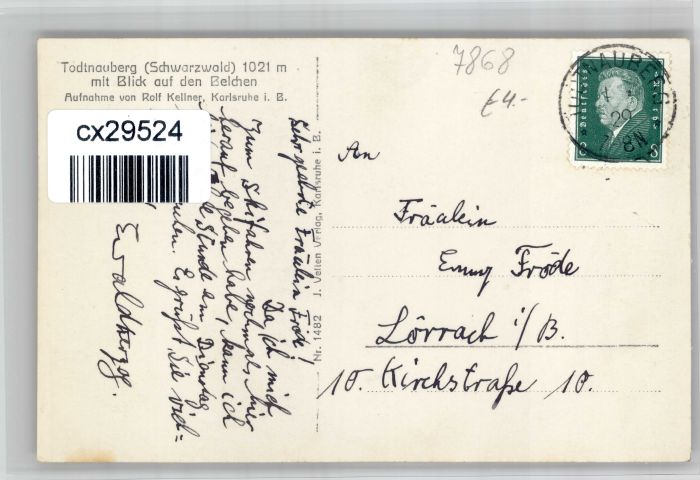 Todtnauberg (Schwarzwald) 1021 m
mit Blick auf den Belchen
Aufnahme von Rolf Kellner, Karlsruhe i. B.
cx29524
7868
€4.-
TODTNAUBERG
29
8N
Deutsches Reich
8 8
Nr. 1482 J. Velten Verlag, Karlsruhe i. B.
Sehr geehrte Fräulein Fröde!
Da ich mich
zum Skifahren nochmals hier
herauf begeben habe, kann ich
Stunde am Dienstag
Es grüßt Sie viel=
Ewald Herzog.
An
Fräulein
Emmy Fröde
Lörrach i/B.
10. Kirchstraße 10.